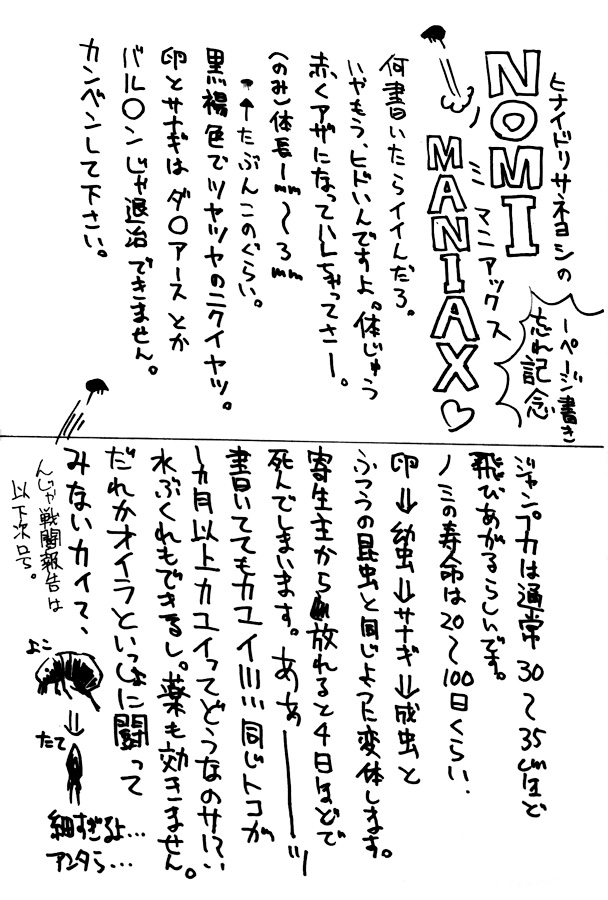 ヒナイドリサネヨシの
NOMI
ノミ マニアックス
MANIAX♡
一ページ書き
忘れ記念
何書いたらイイんだろ。
いやもう、ヒドいんですよ。体じゅう
赤くアザになっていしちゃってさー。
(のみ)体長1mm〜3mm
↑たぶんこのぐらい。
黒褐色でツヤツヤのニクイヤツ。
卵とサナギはダ〇アースとか
バル〇ンじゃ退治できません。
カンベンして下さい。
ジャンプ力は通常30〜35cmほど
飛びあがるらしいです。
ノミの寿命は20〜100日くらい.
卵⇒幼虫⇒サナギ⇒成虫と
ふつうの昆虫と同じように変体します。
寄生主から放れると4日ほどで
死んでしまいます。あぁーーッ
書いててもカユイ!!!!同じトコが
1ヵ月以上カユイってどうなのサ!?
水ぶくれもできるし。薬も効きません。
だれかオイラといっしょに闘って
みないカイ?、
んじゃ戦闘報告は
以下次号。
よこ
⇓
たて
細すぎるよ…
アンタら…